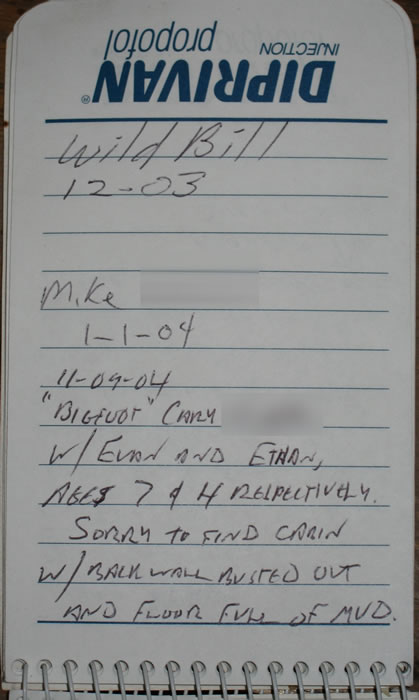 DIPRIVAN®
INJECTION propofol
Wild Bill
12-03
Mike
1-1-04
11-09-04
"BIGFOOT" CARY
W/ EVAN AND ETHAN,
AGES 7 & 4 RESPECTIVELY.
SORRY TO FIND CABIN
W/ BACK WALL BUSTED OUT
AND FLOOR FULL OF MUD.